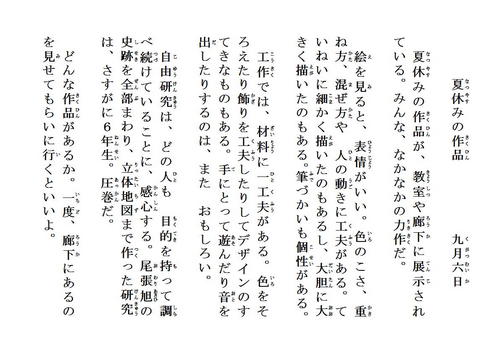 夏休みの作品　九月六日
夏休みの作品が、教室や廊下に展示され
ている。みんな、なかなかの力作だ。
絵を見ると、表情がいい。色のこさ、重
ね方、混ぜ方や　人の動きに工夫がある。て
いねいに細かく描いたのもあるし、大胆に大
きく描いたのもある。筆づかいも個性がある。
工作では、材料に一工夫がある。色をそ
ろえたり飾りを工夫したりしてデザインのす
てきなものもある。手にとって遊んだり音を
出したりするのは、また　おもしろい。
自由研究は、どの人も　目的を持って調
べ続けていることに、感心する。尾張旭の
史跡を全部まわり、立体地図まで作った研究
は、さすがに６年生。圧巻だ。
どんな作品があるか。一度、廊下にあるの
を見せてもらいに行くといいよ。